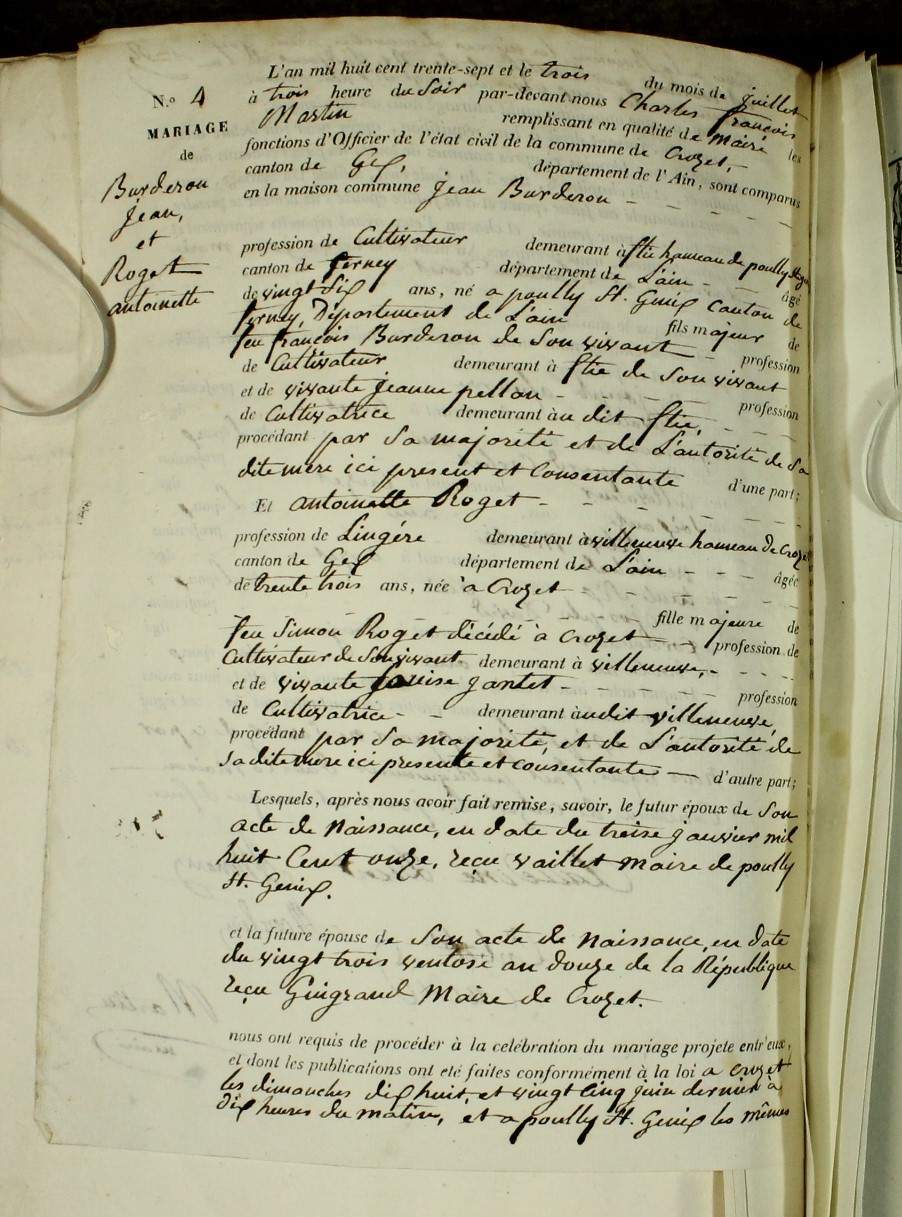 N.o 4
MARIAGE
de
Burderon
Jean,
et
Roget
antoinette
L'an mil huit cent trente-sept et le trois du mois de juillet
à trois heure du Soir par-devant nous Charles françois
Martin remplissant en qualité de Maire les
fonctions d'Officier de l'état civil de la commune de Crozet,
canton de Gex, département de l'Ain, sont comparus
en la maison commune Jean Burderon - - - - -
profession de Cultivateur demeurant à flie hameau de pouilly
canton de ferney département de L'ain - - âgé
de vingt Six ans, né a pouilly St. Genix Canton de
ferney, Département de L'ain fils majeur de
feu françois Burderon de Son vivant - profession
de Cultivateur demeurant à flie de Son vivant
et de vivante Jeanne pellon - - - - profession
de Cultivatrice demeurant àu dit flie, - - -
procédant par Sa majorité et de L'autorité de Sa
dite mere ici present et Consentante d'une part;
Et antoinette Roget - - - - - -
profession de Lingére demeurant à villeneuve hameau de Crozet
canton de Gex département de L'ain - - - âgée
de trente trois ans, née à Crozet - - - - -
- - - - fille majeure de
feu Simon Roget décédé à Crozet - - profession de
Cultivateur de Son vivant demeurant à villeneuve, - - - -
et de vivante Louise Jantet - - - - - profession
de Cultivatrice - - demeurant àudit villeneuve,
procédant par Sa majorité, et de L'autorité de
Sa dite mere ici presente et consentante — d'autre part;
Lesquels, après nous avoir fait remise, savoir, le futur époux de Son
acte de Naissance, en date du treise janvier mil
huit Cent onze, reçu vaillet Maire de pouilly
St. Genix.
et la future épouse de Son acte de Naissance, en date
du vingt trois ventose an douze de la République
reçu Guigrand Maire de Crozet.
nous ont requis de procéder à la celébration du mariage projete entr'eux,
et dont les publications ont été faites conformément à la loi a Crozet
les dimanches dix huit, et vingt Cinq juin dernier a
dix heures du matin, et a pouilly St. Genix les mêmes